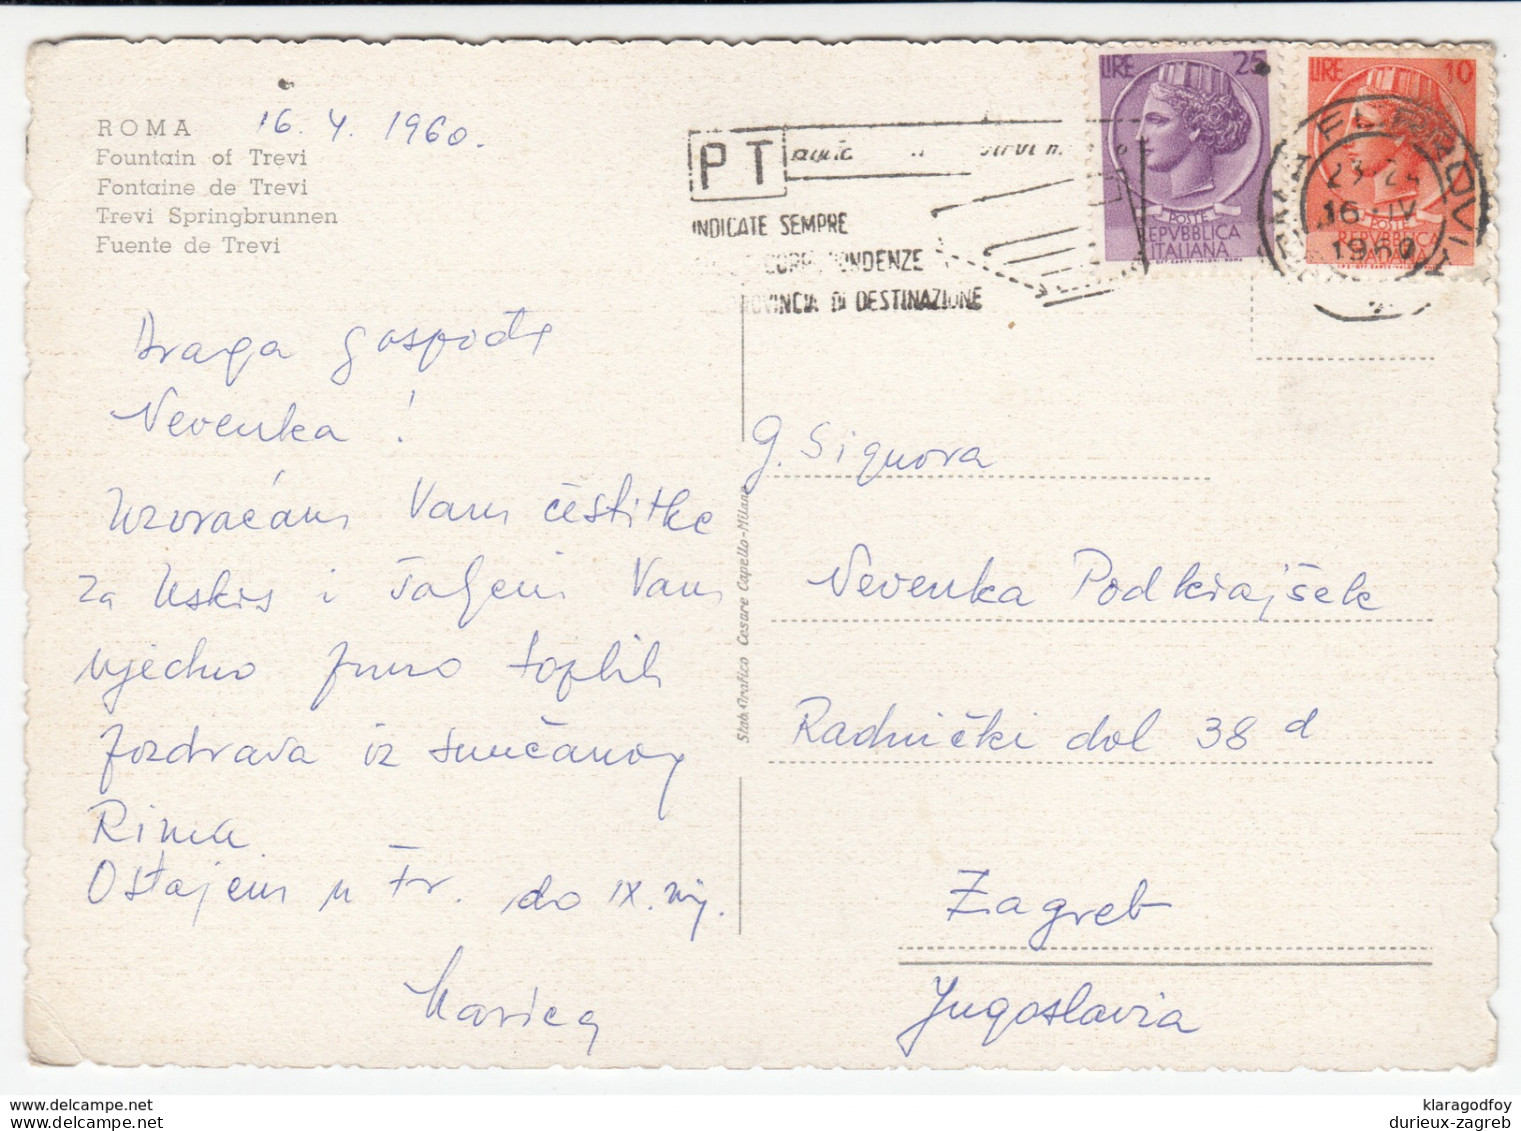 ROMA
Fountain of Trevi
Fontaine de Trevi
Trevi Springbrunnen
Fuente de Trevi
16. 4. 1960.
Draga gospođe
Nevenka !
Uzvraćam Vam čestitke
za Uskrs i šaljem Vam
ujedno puno toplih
pozdrava iz sunčanog
Rima
Ostajem u Fr. do IX. mj.
Marica
PT
INDICATE SEMPRE
CORRISPONDENZE
PROVINCIA DI DESTINAZIONE
LIRE 25
POSTE
REPVBBLICA
ITALIANA
LIRE 10
POSTE
REPVBBLICA
ITALIANA
ROMA FERROVIA
23-24
16.IV
1960
Stab. Grafico Cesare Capello-Milano
g. Signora
Nevenka Podkrajšek
Radnički dol 38 d
Zagreb
Jugoslavia
klaragodfoy
www.delcampe.net
durieux-zagreb